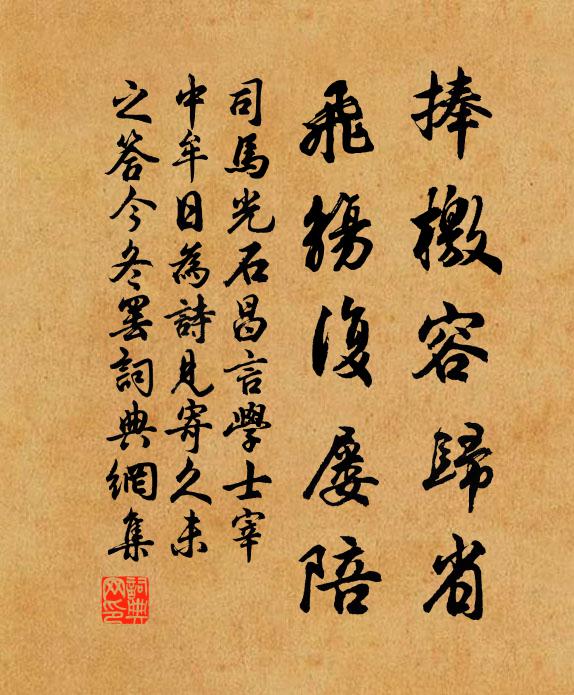 捧檄容歸省
飛觴復屡陪
司馬光石昌言學士宰
中牟日為詩見寄久未
之答今冬罢詞典網集
詞典网印